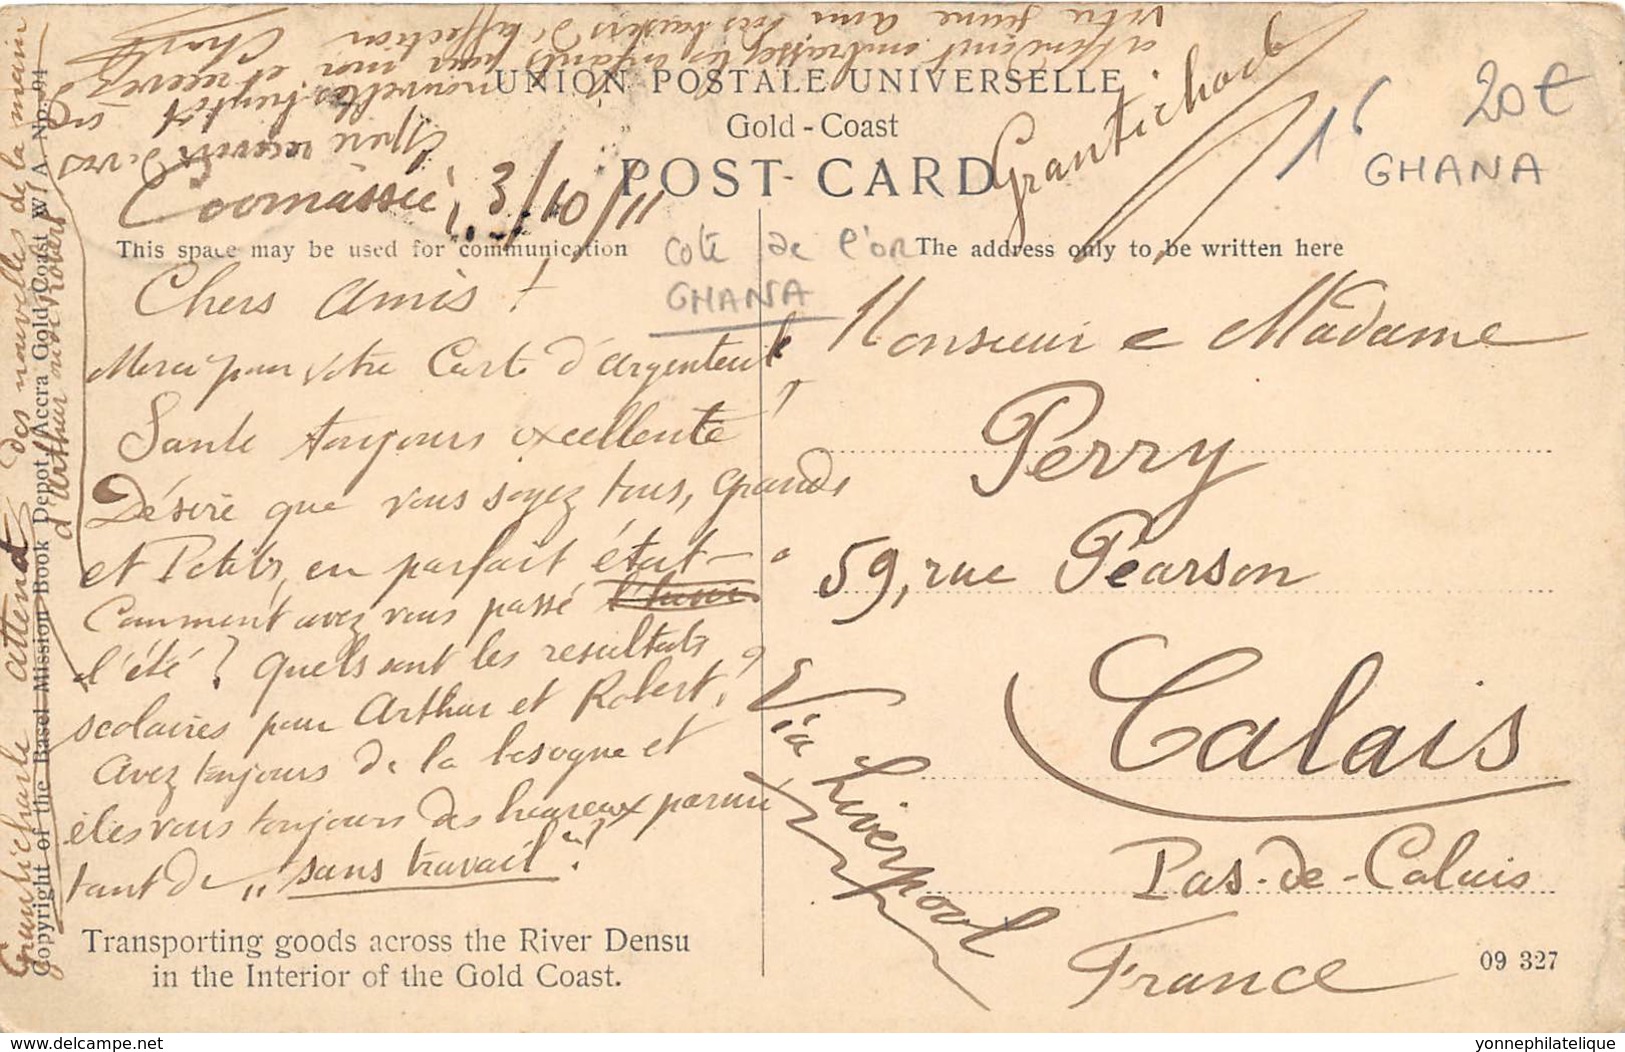 UNION POSTALE UNIVERSELLE
Gold-Coast
POST-CARD
This space may be used for communication
The address only to be written here
16
20€
GHANA
Cote de l'or
GHANA
Coomassie, 3/10/11
Chers Amis!
Merci pour votre Carte d'Argenteuil,
Santé toujours excellente
Désire que vous soyez tous, Grands
et Petits, en parfait état—
Comment avez vous passé
l'été? Quels sont les resultats
scolaires pour Arthur et Robert?
Avez toujours de la besogne et
êtes vous toujours des heureux parmi
tant de „sans travail"?
Espère recevoir de vos
nouvelles bientôt
attendant embrassez les enfants pour moi et recevez
votre jeune ami bons baisers d'affection
Charles
Granticharle attend des nouvelles de la main
d'Arthur ou de Robert
Monsieur e Madame
Perry
59, rue Pearson
Calais
Pas-de-Calais
France
Via Liverpool
Transporting goods across the River Densu
in the Interior of the Gold Coast.
09 327
Copyright of the Basel Mission Book Depot, Accra Gold Coast W/A No. 94
delcampe.net
yonnephilatelique